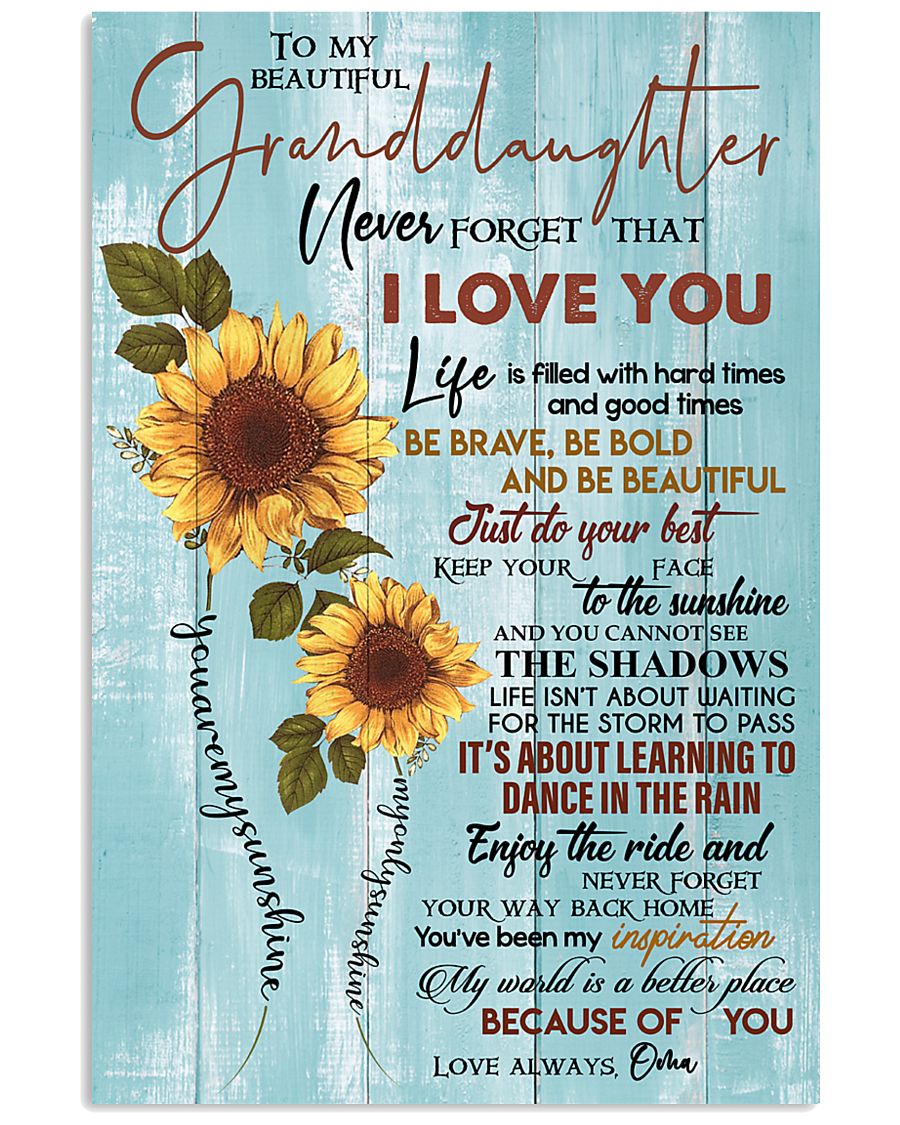 TO MY
BEAUTIFUL
Granddaughter
Never FORGET THAT
I LOVE YOU
Life is filled with hard times
and good times
BE BRAVE, BE BOLD
AND BE BEAUTIFUL
Just do your best
KEEP YOUR FACE
to the sunshine
AND YOU CANNOT SEE
THE SHADOWS
LIFE ISN'T ABOUT WAITING
FOR THE STORM TO PASS
IT'S ABOUT LEARNING TO
DANCE IN THE RAIN
Enjoy the ride and
NEVER FORGET
YOUR WAY BACK HOME
You've been my inspiration
My world is a better place
BECAUSE OF YOU
LOVE ALWAYS, Oma
youaremysunshine
myonlysunshine